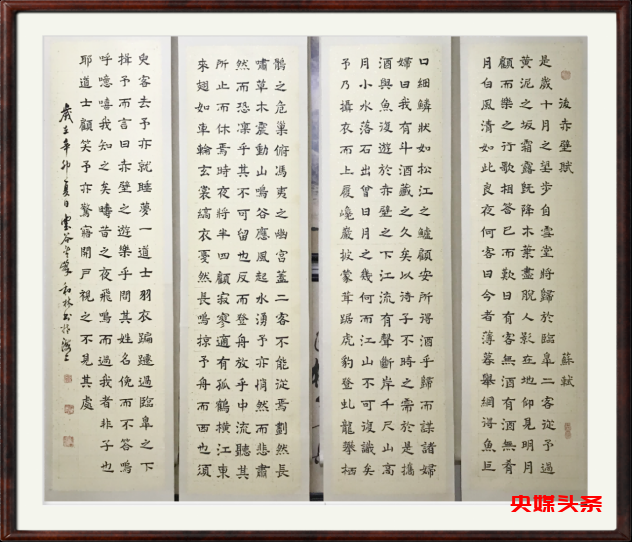 後赤壁賦 蘇軾
是歲十月之望步自雪堂將歸於臨皋二客從予過
黃泥之坂霜露既降木葉盡脫人影在地仰見明月
顧而樂之行歌相答已而歎曰有客無酒有酒無肴
月白風清如此良夜何客曰今者薄暮舉網得魚巨
口細鱗狀如松江之鱸顧安所得酒乎歸而謀諸婦
婦曰我有斗酒藏之久矣以待子不時之需於是攜
酒與魚復遊於赤壁之下江流有聲斷岸千尺山高
月小水落石出曾日月之幾何而江山不可復識矣
予乃攝衣而上履巉巖披蒙茸踞虎豹登虬龍攀栖
鶻之危巢俯馮夷之幽宮蓋二客不能從焉劃然長
嘯草木震動山鳴谷應風起水湧予亦悄然而悲肅
然而恐凜乎其不可留也反而登舟放乎中流聽其
所止而休焉時夜將半四顧寂寥適有孤鶴橫江東
來翅如車輪玄裳縞衣戛然長鳴掠予舟而西也須
臾客去予亦就睡夢一道士羽衣蹁躚過臨皋之下
揖予而言曰赤壁之遊樂乎問其姓名俛而不答嗚
呼噫嘻我知之矣疇昔之夜飛鳴而過我者非子也
耶道士顧笑予亦驚寤開戶視之不見其處
歲在辛卯夏日 和林書於
央媒头条